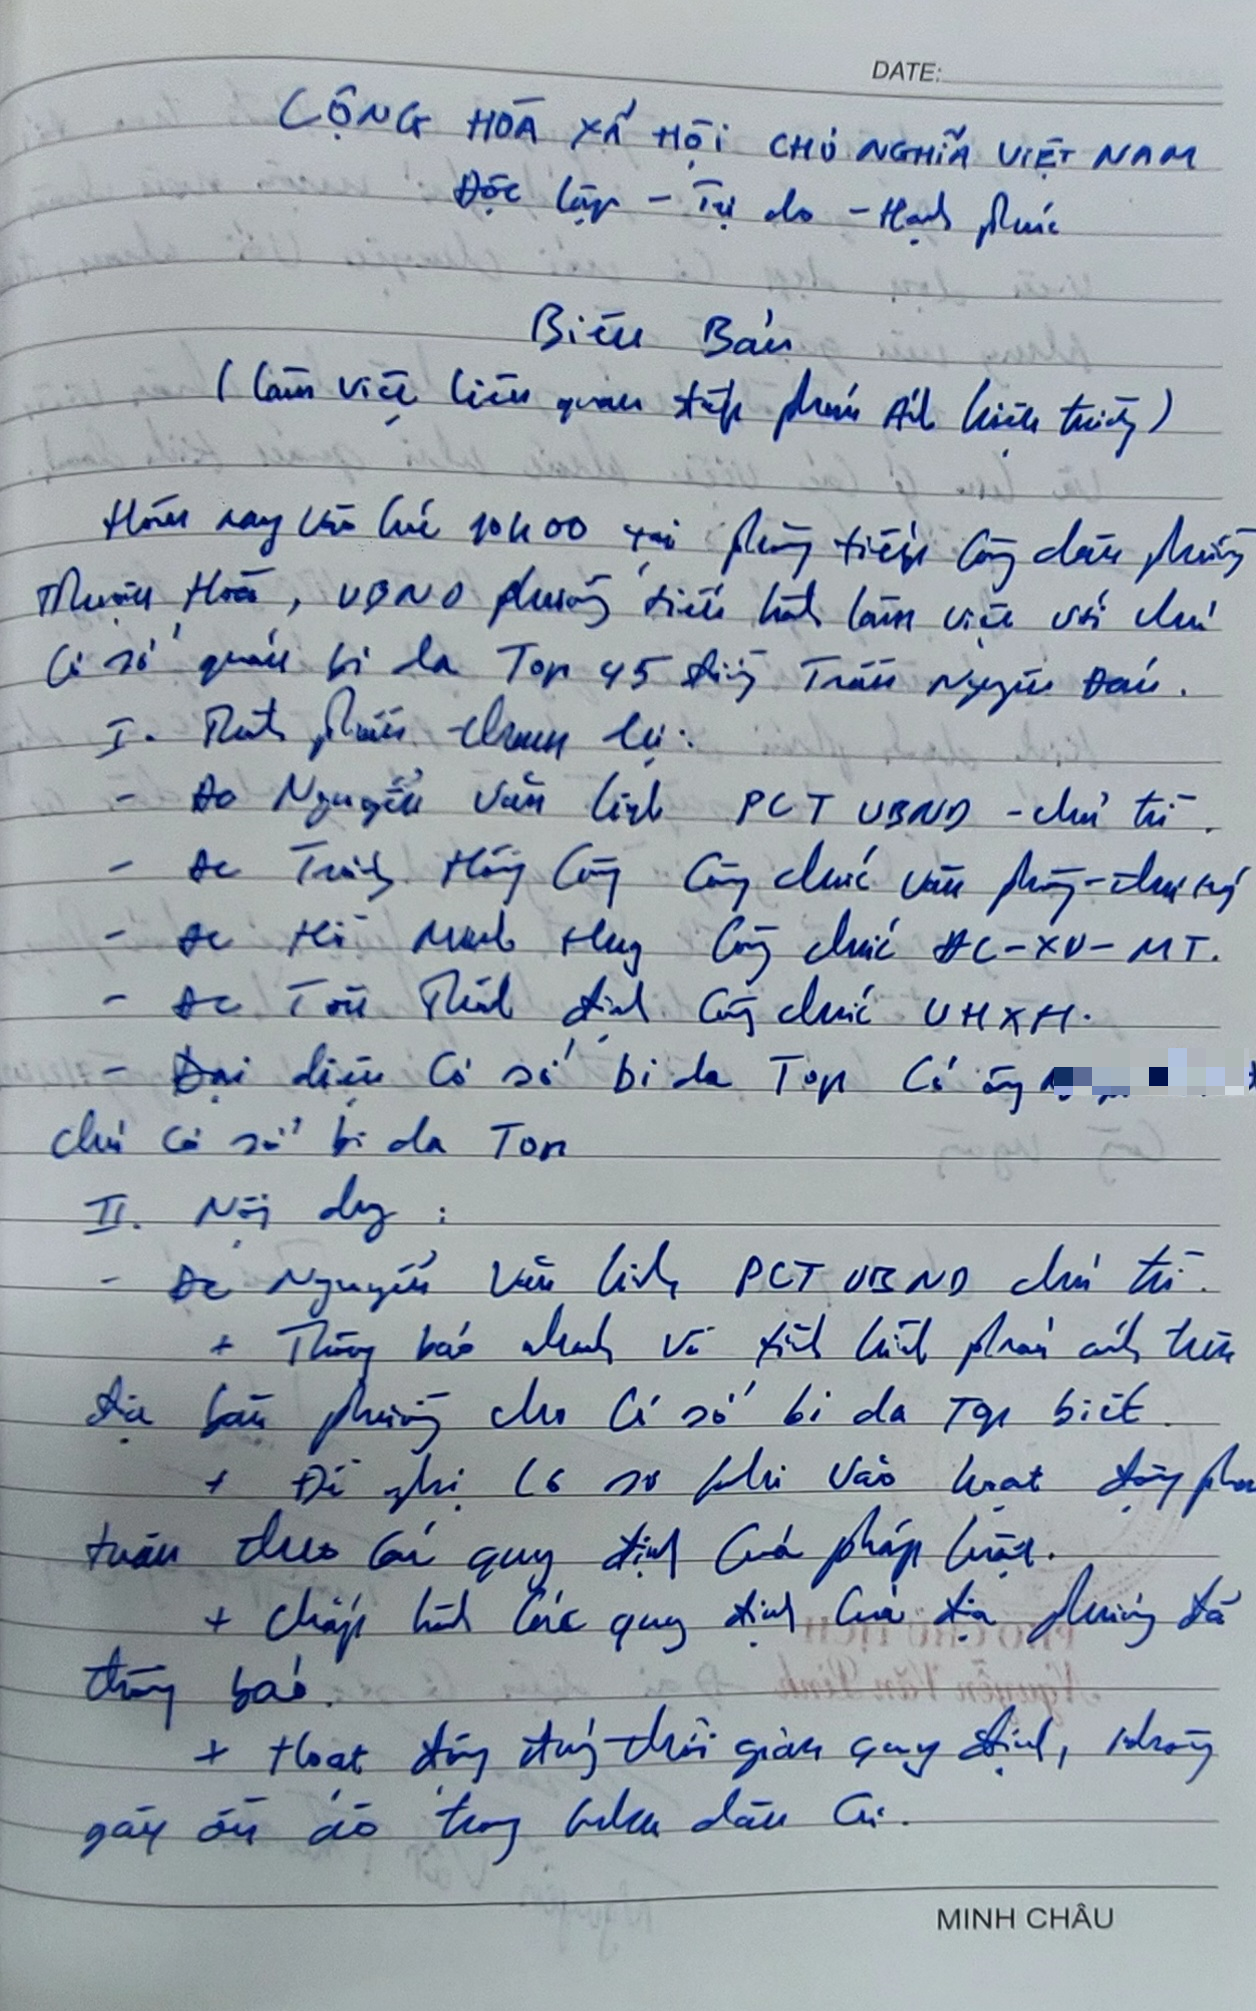 DATE:
CỘNG HÒA XÃ HỘI CHỦ NGHĨA VIỆT NAM
Độc lập - Tự do - Hạnh phúc
Biên Bản
(làm việc liên quan đến phản ánh hiện trường)
Hôm nay vào lúc 10h00 tại phòng tiếp công dân phường
Thuận Hoá, UBND phường tiến hành làm việc với chủ
cơ sở quán bi da Top 45 đường Trần Nguyên Đán.
I. Thành phần tham dự:
- Đc Nguyễn Văn Linh PCT UBND - chủ trì.
- Đc Hồng Công Công chức văn phòng - thư ký
- Đc Hồ Minh Huy Công chức ĐC-XD-MT.
- Đc Tôn Thất Định Công chức VHXH.
- Đại diện Cơ sở bi da Top Có ông
chủ cơ sở bi da Top
II. Nội dung:
- Đc Nguyễn Văn Linh PCT UBND chủ trì.
+ Thông báo nhanh về tình hình phản ánh trên
địa bàn phường cho Cơ sở bi da Top biết.
+ Đề nghị Cơ sở khi vào hoạt động phải
tuân theo các quy định của pháp luật.
+ Chấp hành các quy định của địa phương đã
thông báo.
+ Hoạt động đúng thời gian quy định, không
gây ồn ào trong khu dân cư.
MINH CHÂU